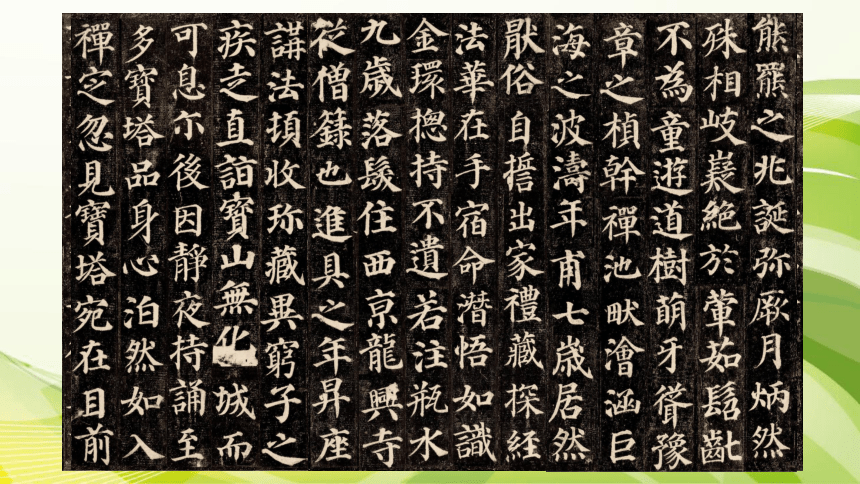 熊羆之兆誕弥厥月炳然
殊相岐嶷絶於葷茹髫齔
不為童遊道樹萌牙聳豫
章之楨幹禪池畎澮涵巨
海之波濤年甫七歲居然
猒俗自誓出家禮藏探経
法華在手宿命潛悟如識
金環捴持不遺若注瓶水
九歲落髮住西京龍興寺
從僧籙也進具之年昇座
講法頓收珎藏異窮子之
疾走直詣寶山無化城而
可息尒後因靜夜持誦至
多寶塔品身心泊然如入
禪定忽見寶塔宛在目前